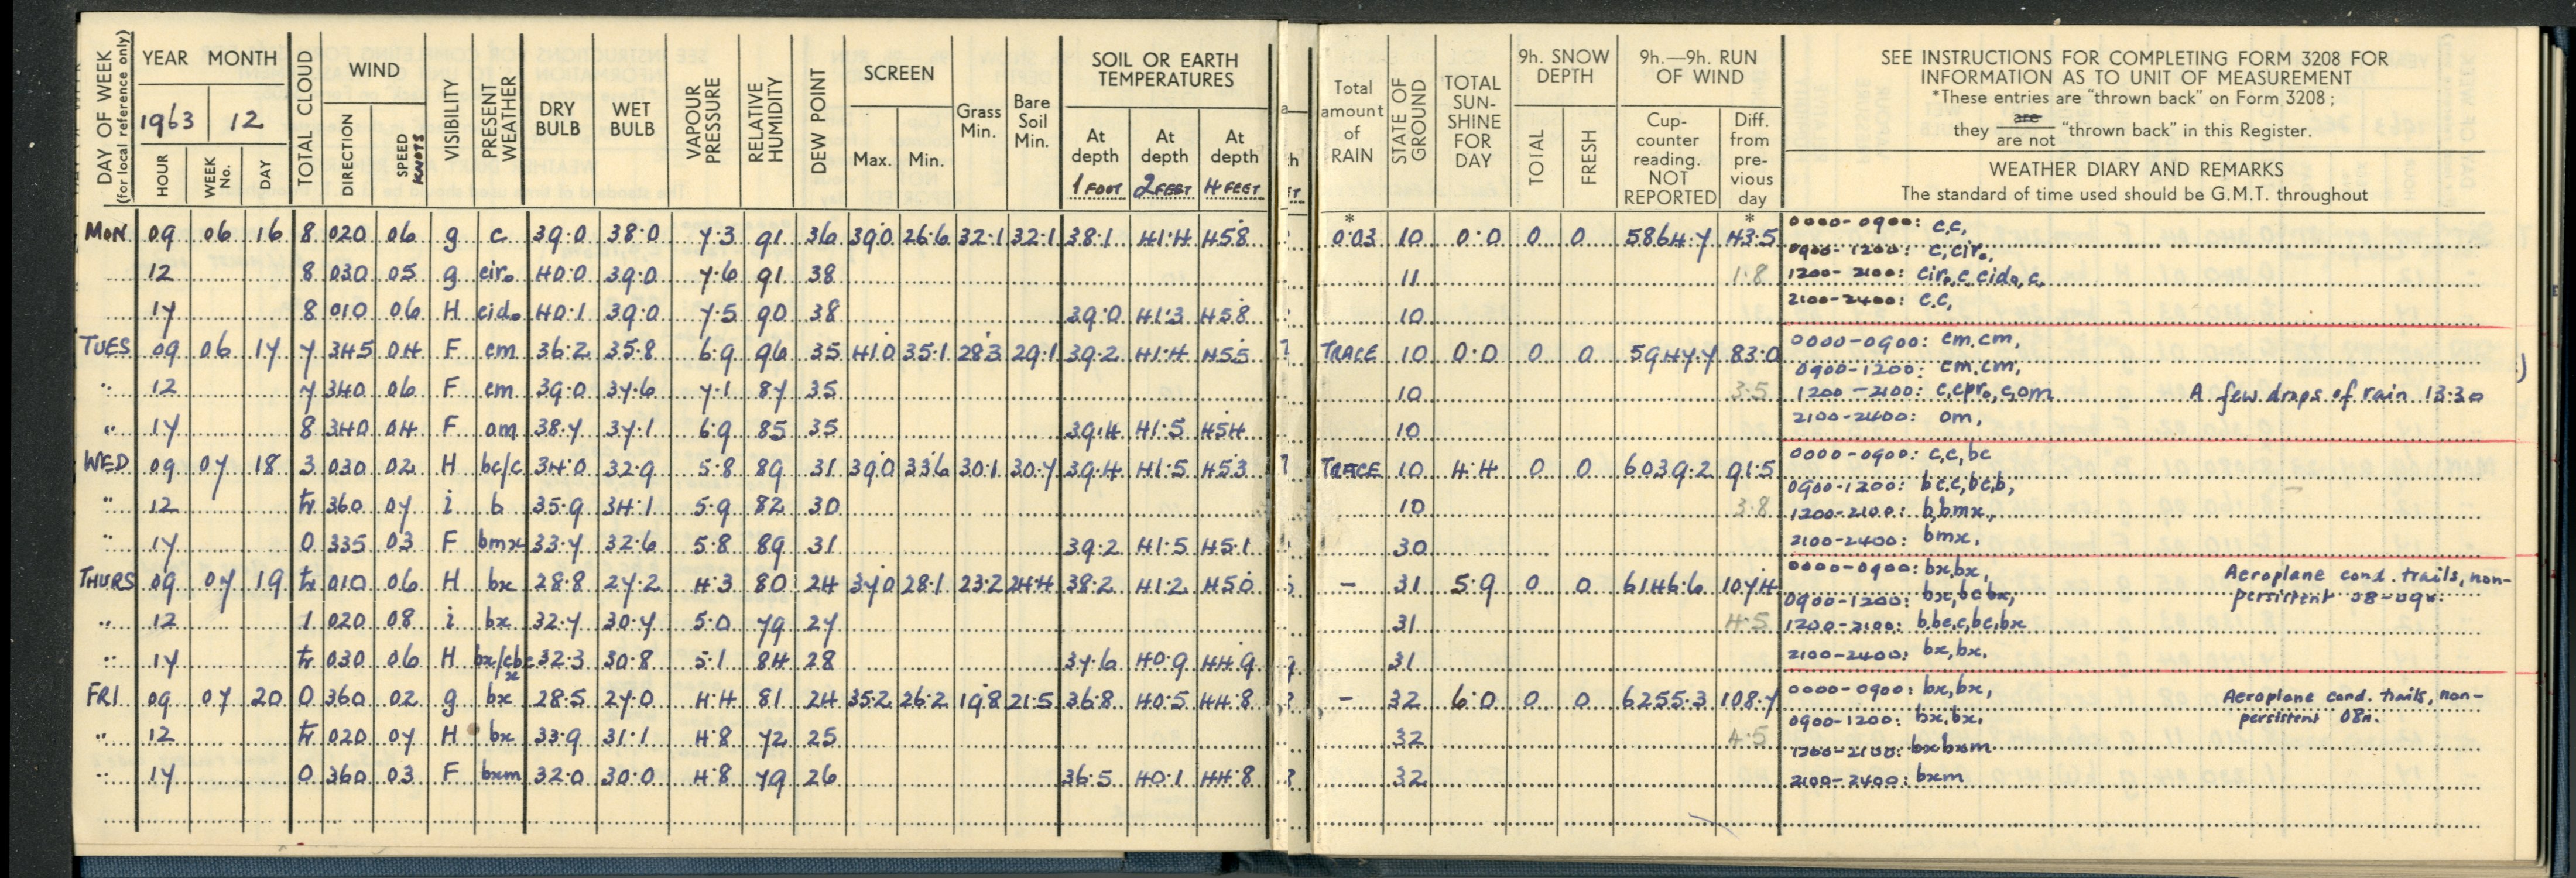 DAY OF WEEK (for local reference only) YEAR MONTH TOTAL CLOUD WIND VISIBILITY PRESENT WEATHER DRY BULB WET BULB VAPOUR PRESSURE RELATIVE HUMIDITY DEW POINT SCREEN Grass Min. Bare Soil Min. SOIL OR EARTH TEMPERATURES
1963 12
HOUR WEEK No. DAY DIRECTION SPEED KNOTS Max. Min. At depth 1 FOOT At depth 2 FEET At depth 4 FEET
Total amount of RAIN STATE OF GROUND TOTAL SUN-SHINE FOR DAY 9h. SNOW DEPTH 9h.—9h. RUN OF WIND
TOTAL FRESH Cup-counter reading. NOT REPORTED Diff. from pre-vious day
SEE INSTRUCTIONS FOR COMPLETING FORM 3208 FOR
INFORMATION AS TO UNIT OF MEASUREMENT
*These entries are "thrown back" on Form 3208;
they are / are not "thrown back" in this Register.
WEATHER DIARY AND REMARKS
The standard of time used should be G.M.T. throughout
MON 09 06 16 8 020 06 g c 39.0 38.0 7.3 91 36 39.0 26.6 32.1 32.1 38.1 41.4 45.8 * 0.03 10 0.0 0 0 5864.7 * 43.5 0000-0900: c,c,
0900-1200: c,cir₀,
12 8 030 05 g cir₀ 40.0 39.0 7.6 91 38 11 1.8 1200-2100: cir₀,c,cid₀,c,
2100-2400: c,c,
17 8 010 06 H cid₀ 40.1 39.0 7.5 90 38 39.0 41.3 45.8 10
TUES 09 06 17 7 345 04 F cm 36.2 35.8 6.9 96 35 41.0 35.1 28.3 29.1 39.2 41.4 45.5 TRACE 10 0.0 0 0 5947.7 83.0 0000-0900: cm,cm,
0900-1200: cm,cm,
" 12 7 340 06 F cm 39.0 37.6 7.1 87 35 10 3.5 1200-2100: c,cpr₀,c,om A few drops of rain 13:30
2100-2400: om,
" 17 8 340 04 F om 38.7 37.1 6.9 85 35 39.4 41.5 45.4 10
WED 09 07 18 3 030 02 H bc/c 34.0 32.9 5.8 89 31 39.0 33.6 30.1 30.7 39.4 41.5 45.3 TRACE 10 4.4 0 0 6039.2 91.5 0000-0900: c,c,bc
0900-1200: bc,c,bc,b,
" 12 tr 360 07 i b 35.9 34.1 5.9 82 30 10 3.8 1200-2100: b,bmx,
" 17 0 335 03 F bmx 33.7 32.6 5.8 89 31 39.2 41.5 45.1 30 2100-2400: bmx,
THURS 09 07 19 tr 010 06 H bx 28.8 27.2 4.3 80 24 37.0 28.1 23.2 24.4 38.2 41.2 45.0 – 31 5.9 0 0 6146.6 107.4 0000-0900: bx,bx, Aeroplane cond. trails, non-
0900-1200: bx,bcbx, persistent 08-09
" 12 1 020 08 i bx 32.7 30.7 5.0 79 27 31 4.5 1200-2100: b,bc,c,bc,bx
" 17 tr 030 06 H 32.3 30.8 5.1 84 28 37.6 40.9 44.9 31 2100-2400: bx,bx,
FRI 09 07 20 0 360 02 g bx 28.5 27.0 4.4 81 24 35.2 26.2 19.8 21.5 36.8 40.5 44.8 – 32 6.0 0 0 6255.3 108.7 0000-0900: bx,bx, Aeroplane cond. trails, non-
0900-1200: bx,bx, persistent
" 12 tr 020 07 H bx 33.9 31.1 4.8 72 25 32 4.5 1200-2100: bxbxm
" 17 0 360 03 F bxm 32.0 30.0 4.8 79 26 36.5 40.1 44.8 32 2100-2400: bxm